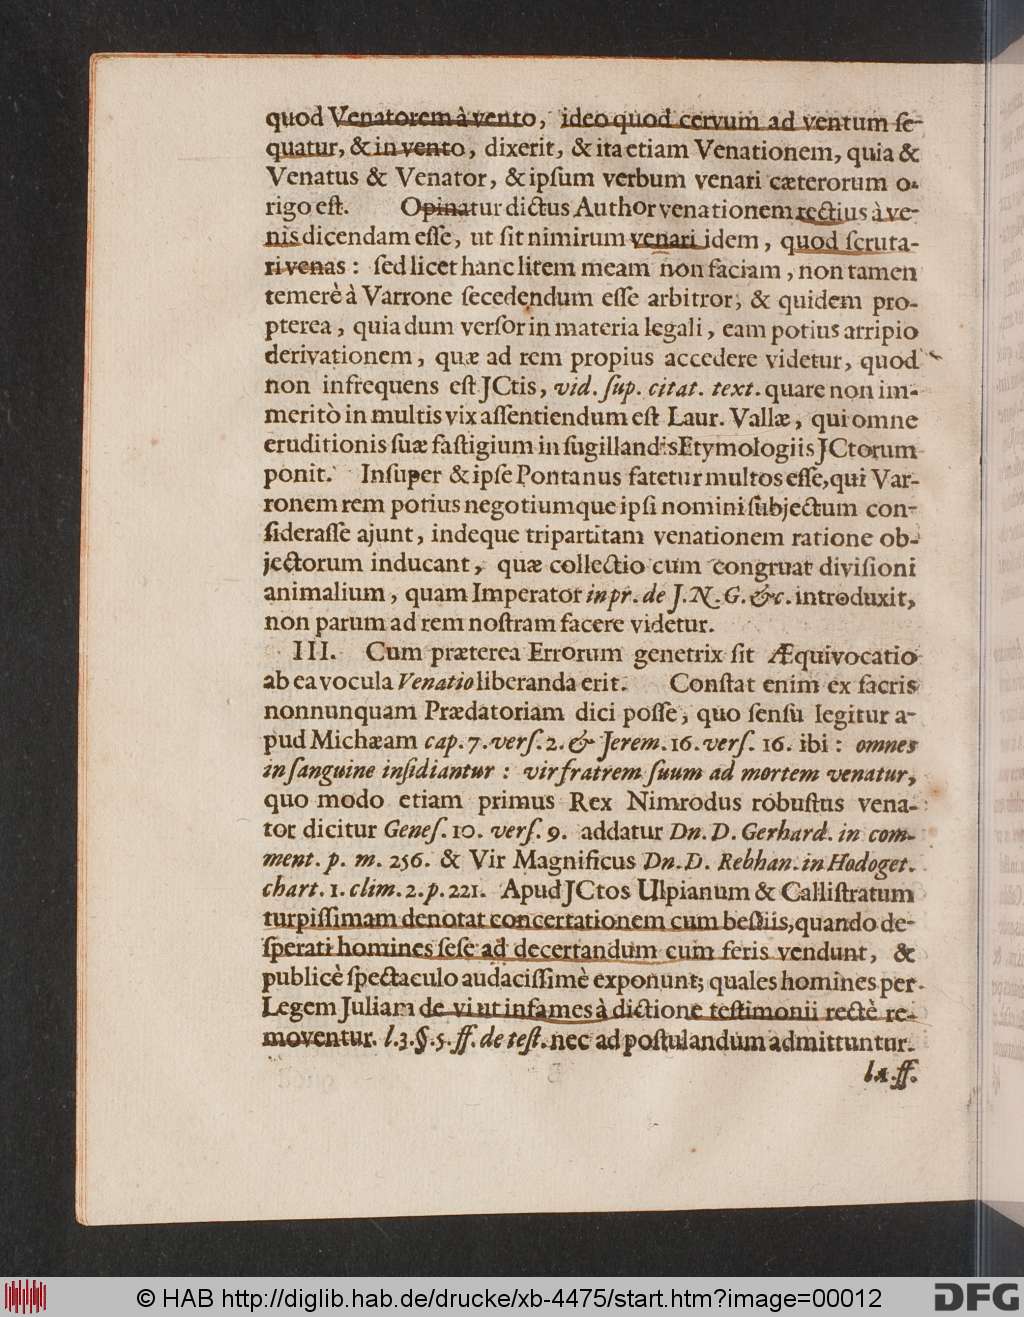 quod Venatorem à vento, ideo quod cervum ad ventum ſe-
quatur, & in vento, dixerit, & ita etiam Venationem, quia &
Venatus & Venator, & ipſum verbum venari cæterorum o-
rigo eſt. Opinatur dictus Author venationem rectius à ve-
nis dicendam eſſe, ut ſit nimirum venari idem, quod ſcruta-
ri venas: ſed licet hanc litem meam non faciam, non tamen
temerè à Varrone ſecedendum eſſe arbitror, & quidem pro-
pterea, quia dum verſor in materia legali, eam potius arripio
derivationem, quæ ad rem propius accedere videtur, quod
non infrequens eſt JCtis, vid. ſup. citat. text. quare non im-
meritò in multis vix aſſentiendum eſt Laur. Vallæ, qui omne
eruditionis ſuæ faſtigium in ſugillandis Etymologiis JCtorum
ponit. Inſuper & ipſe Pontanus fatetur multos eſſe, qui Var-
ronem rem potius negotiumque ipſi nomini ſubjectum con-
ſideraſſe ajunt, indeque tripartitam venationem ratione ob-
jectorum inducant, quæ collectio cum congruat diviſioni
animalium, quam Imperator in pr. de J. N. G. &c. introduxit,
non parum ad rem noſtram facere videtur.
III. Cum præterea Errorum genetrix ſit Æquivocatio
ab ea vocula Venatio liberanda erit. Conſtat enim ex ſacris
nonnunquam Prædatoriam dici poſſe, quo ſenſu legitur a-
pud Michæam cap. 7. verſ. 2. & Jerem. 16. verſ. 16. ibi: omnes
in ſanguine inſidiantur: vir fratrem ſuum ad mortem venatur,
quo modo etiam primus Rex Nimrodus robuſtus vena-
tor dicitur Geneſ. 10. verſ. 9. addatur Dn. D. Gerhard. in com-
ment. p. m. 256. & Vir Magnificus Dn. D. Rebhan. in Hodoget.
chart. 1. clim. 2. p. 221. Apud JCtos Ulpianum & Calliſtratum
turpiſſimam denotat concertationem cum beſtiis, quando de-
ſperati homines ſeſe ad decertandum cum feris vendunt, &
publicè ſpectaculo audaciſſimè exponunt; quales homines per
Legem Juliam de vi ut infames à dictione teſtimonii rectè re-
moventur. l. 3. §. 5. ff. de teſt. nec ad poſtulandum admittuntur.
l. 1. ff.
© HAB http://diglib.hab.de/drucke/xb-4475/start.htm?image=00012
DFG